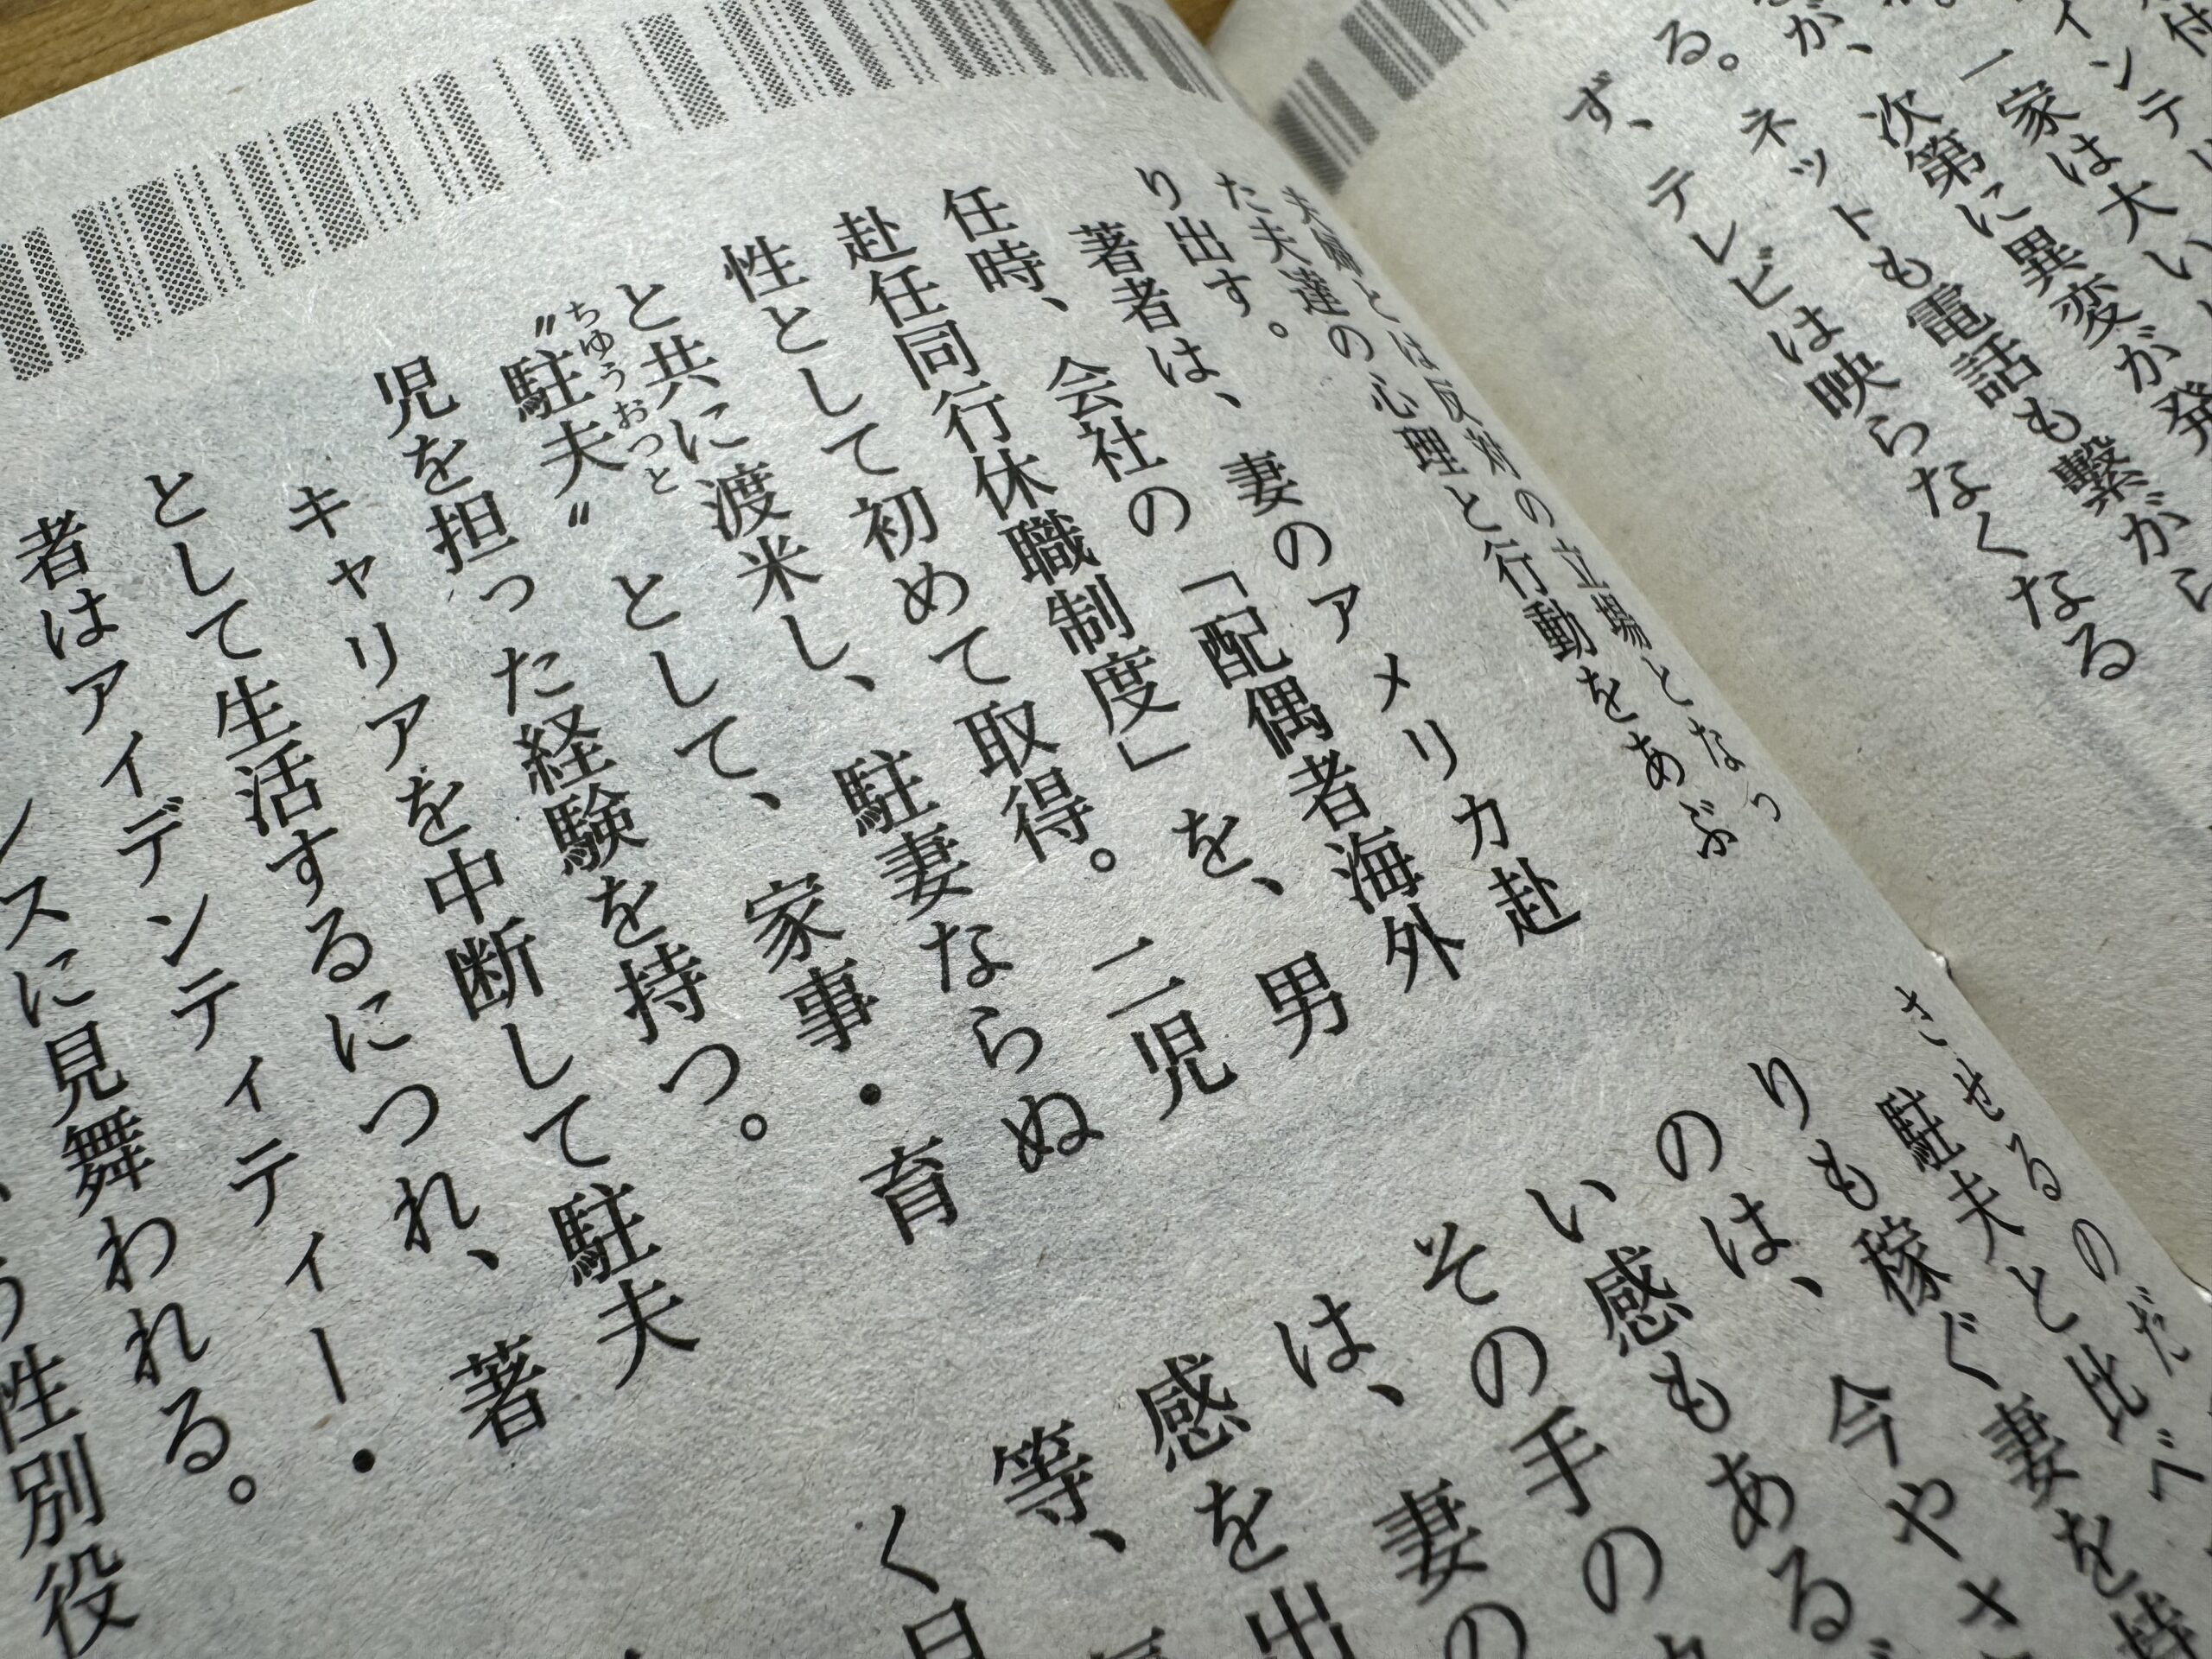 付
インテリ
一家は大い
次第に異変が発
ネットも電話も繋が
ず、テレビは映らなくなる
る。
が、
夫婦とは反対の立場となっ
た夫達の心理と行動をあぶ
り出す。
著者は、妻のアメリカ赴
任時、会社の「配偶者海外
赴任同行休職制度」を、男
性として初めて取得。二児
と共に渡米し、駐妻ならぬ
〝駐夫〟として、家事・育
ちゆうおつと
児を担った経験を持つ。
キャリアを中断して駐夫
として生活するにつれ、著
者はアイデンティティー・
スに見舞われる。
う性別役
させるのだ
駐夫と比べ
りも稼ぐ妻を
のは、今や
い感もある
その手の
は、妻の
感を出
等、
く